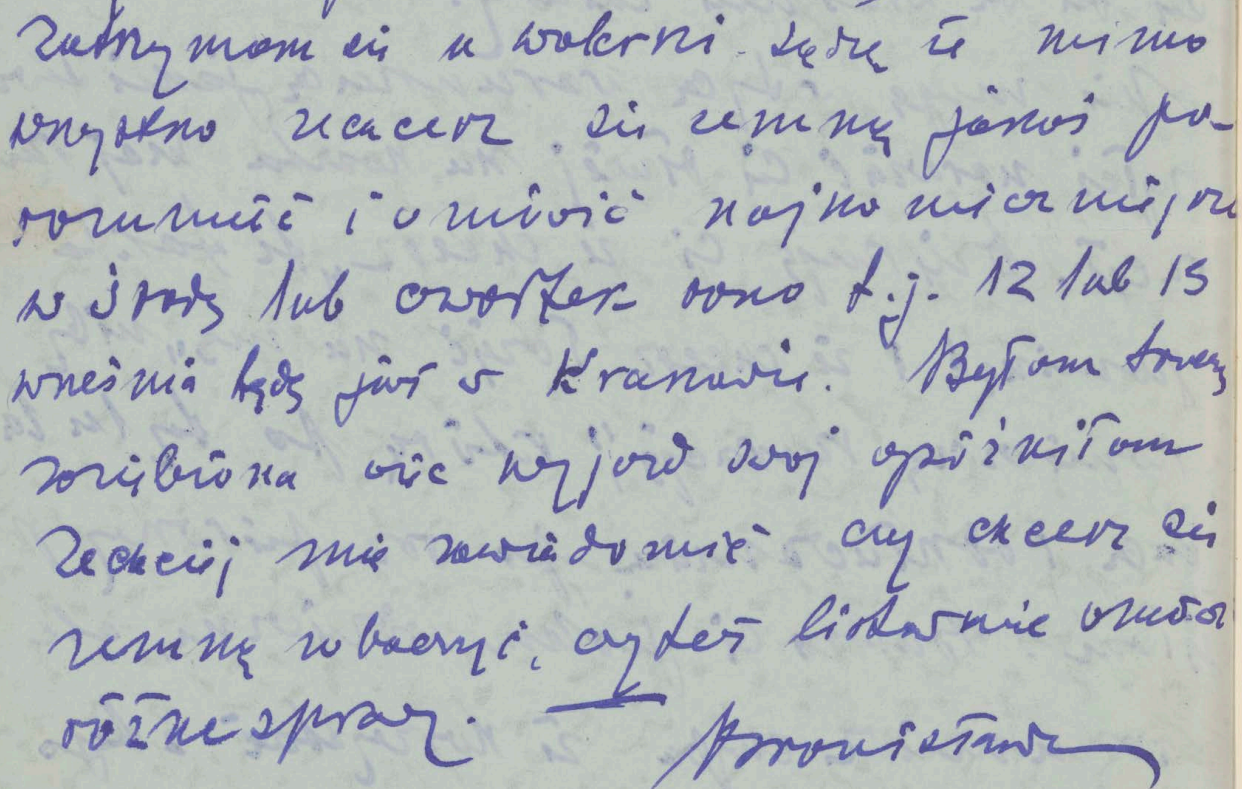 Zatrzymam się u Wokrni sądzę że mimo
wszystko zechcesz się zemną jakoś po-
rozumieć i omówić najkonieczniejsze
w środę lub czwartek rano t.j. 12 lub 13
wneśnia będę już w Krakowie. Byłam trochę
zaziębiona więc wyjazd swój opóźniłam
Zechciej mię zawiadomić czy chcesz się
zemną zobaczyć, czyteż listownie omówić
różne sprawy.
Bronisława